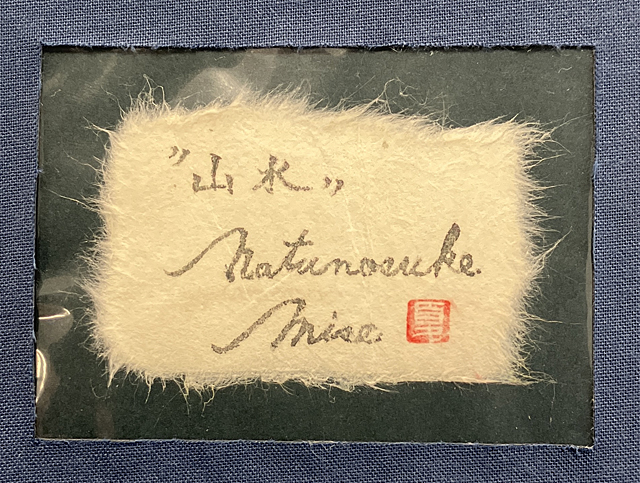 "山水"
Natunosuke
Mise